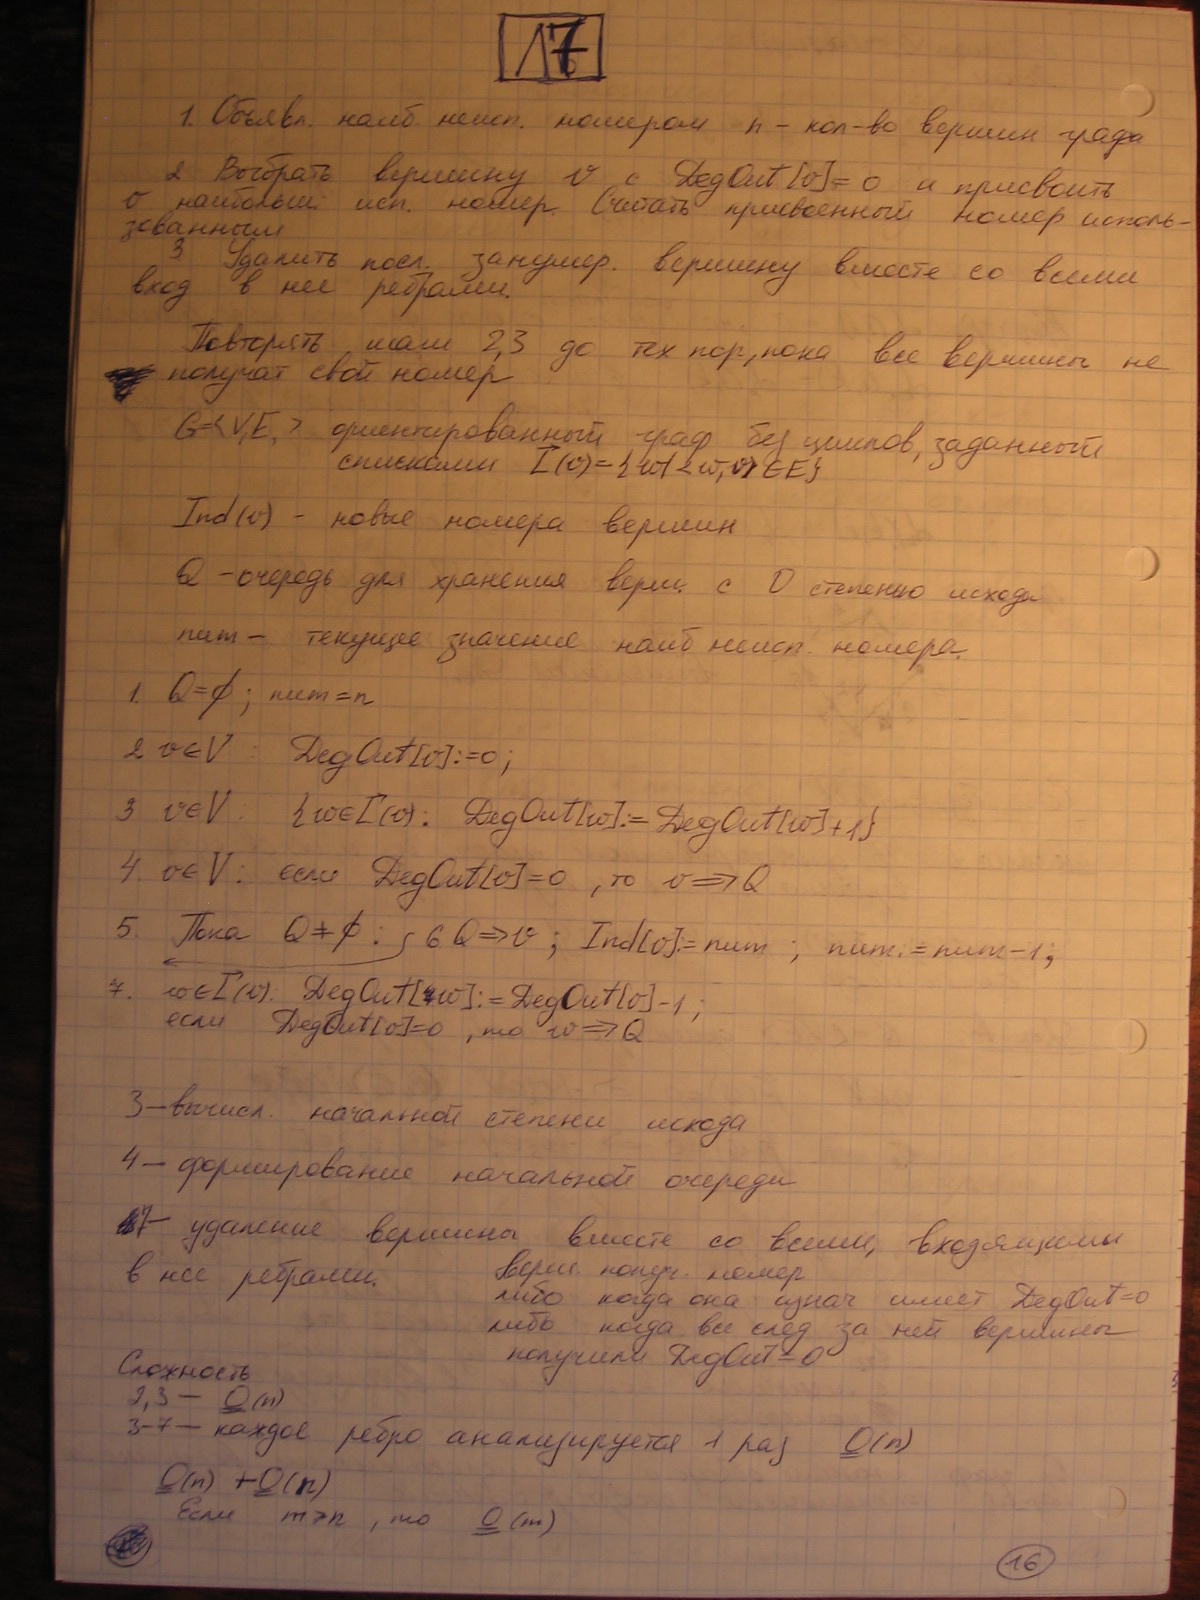 17
1. Объявл. наиб. неисп. номером n - кол-во вершин графа
2 Выбрать вершину v с DegOut[v]=0 и присвоить
v наибольш. исп. номер. Считать присвоенный номер исполь-
зованным
3 Удалить посл. занумер. вершину вместе со всеми
вход в нее ребрами.
Повторять шаги 2,3 до тех пор, пока все вершины не
получат свой номер
G=<V,E,> ориентированный граф без циклов, заданный
списками Γ(v)={w|<w,v>∈E}
Ind(v) - новые номера вершин
Q - очередь для хранения верш. с 0 степенью исхода
num - текущее значение наиб неисп. номера.
1. Q=∅; num=n
2 v∈V: DegOut[v]:=0;
3 v∈V: {w∈Γ(v): DegOut[w]:=DegOut[w]+1}
4. v∈V: если DegOut[v]=0, то v⇒Q
5. Пока Q≠∅: { 6 Q⇒v; Ind[v]:=num; num:=num-1;
7. w∈Γ(v): DegOut[w]:=DegOut[v]-1;
если DegOut[v]=0, то w⇒Q
3-вычисл. начальной степени исхода
4-формирование начальной очереди
7- удаление вершины вместе со всеми, входящими
в нее ребрами.
верш. получ. номер
либо когда она изнач имеет DegOut=0
либо когда все след за ней вершины
получили DegOut=0
Сложность
2,3 - O(n)
3-7 - каждое ребро анализируется 1 раз O(n)
O(n) + O(n)
Если m>n, то O(m)
16